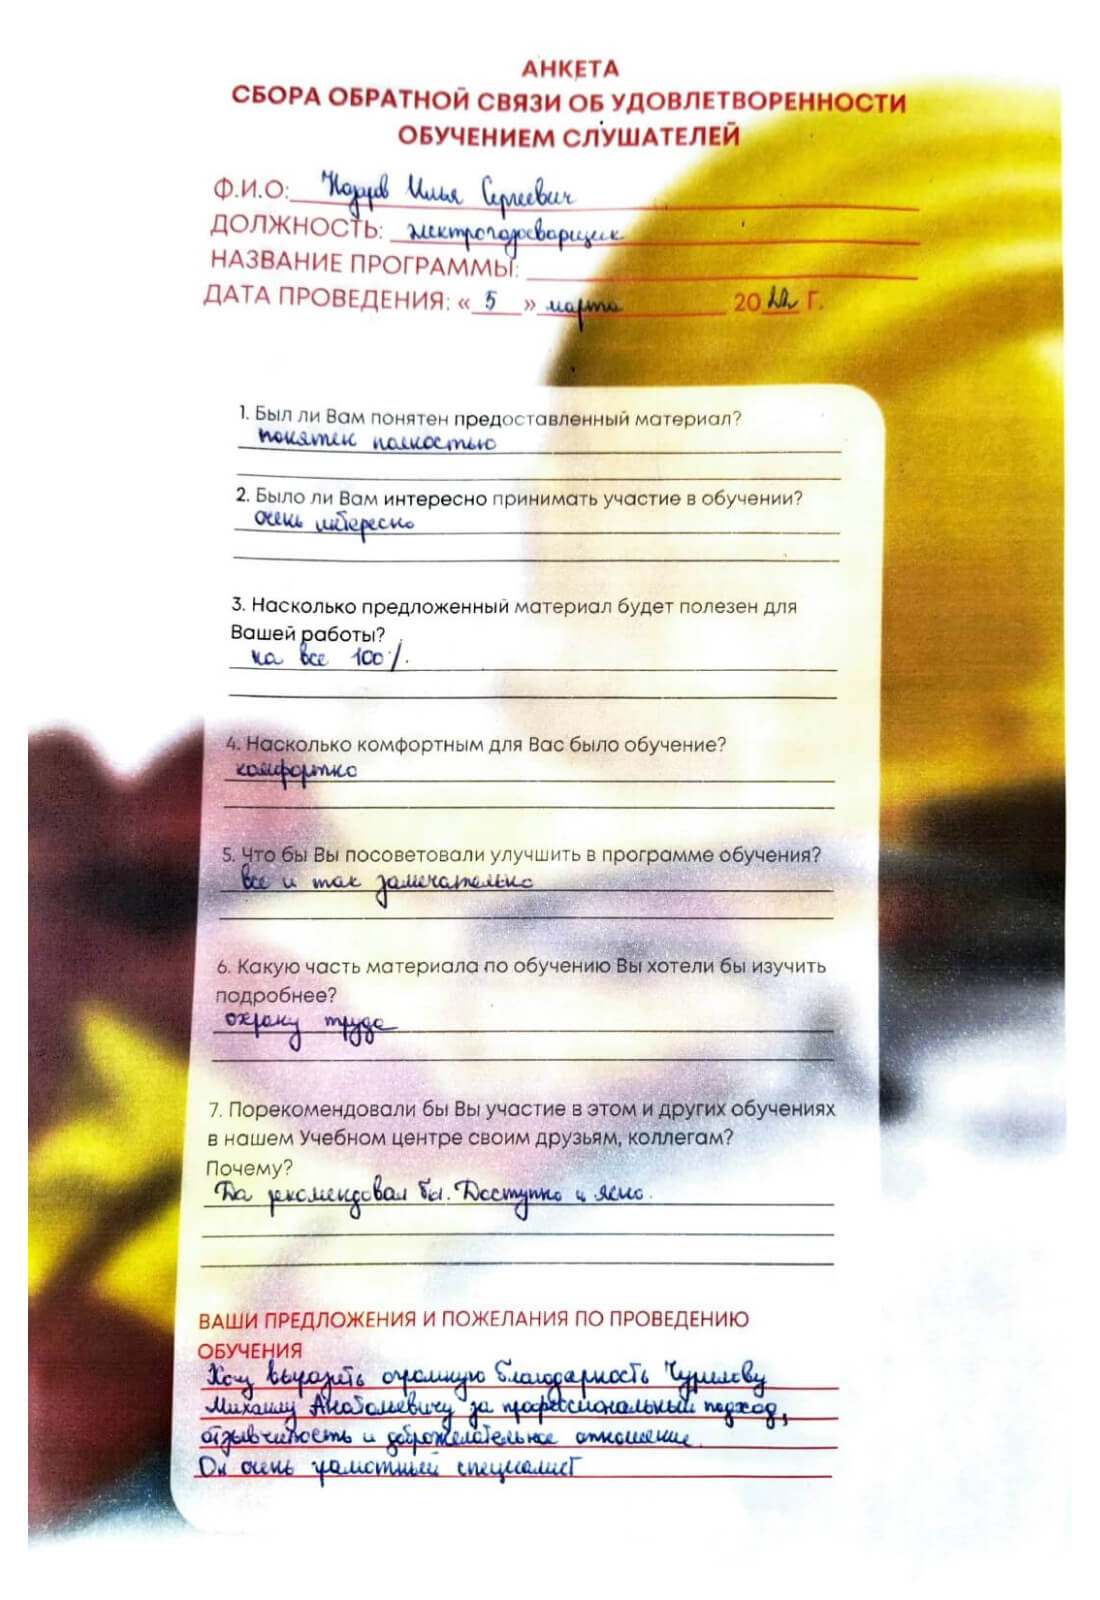 АНКЕТА
СБОРА ОБРАТНОЙ СВЯЗИ ОБ УДОВЛЕТВОРЕННОСТИ
ОБУЧЕНИЕМ СЛУШАТЕЛЕЙ
Ф.И.О: Илья Сергеевич
ДОЛЖНОСТЬ: электрогазосварщик
НАЗВАНИЕ ПРОГРАММЫ:
ДАТА ПРОВЕДЕНИЯ: « 5 » марта 2022 Г.
1. Был ли Вам понятен предоставленный материал?
понятен полностью
2. Было ли Вам интересно принимать участие в обучении?
очень интересно
3. Насколько предложенный материал будет полезен для
Вашей работы?
на все 100%.
4. Насколько комфортным для Вас было обучение?
комфортно
5. Что бы Вы посоветовали улучшить в программе обучения?
все и так замечательно
6. Какую часть материала по обучению Вы хотели бы изучить
подробнее?
охрану труда
7. Порекомендовали бы Вы участие в этом и других обучениях
в нашем Учебном центре своим друзьям, коллегам?
Почему?
Да рекомендовал бы. Доступно и ясно.
ВАШИ ПРЕДЛОЖЕНИЯ И ПОЖЕЛАНИЯ ПО ПРОВЕДЕНИЮ
ОБУЧЕНИЯ
Хочу выразить огромную благодарность Чурилову
Михаилу Анатольевичу за профессиональный подход,
отзывчивость и доброжелательное отношение.
Он очень грамотный специалист